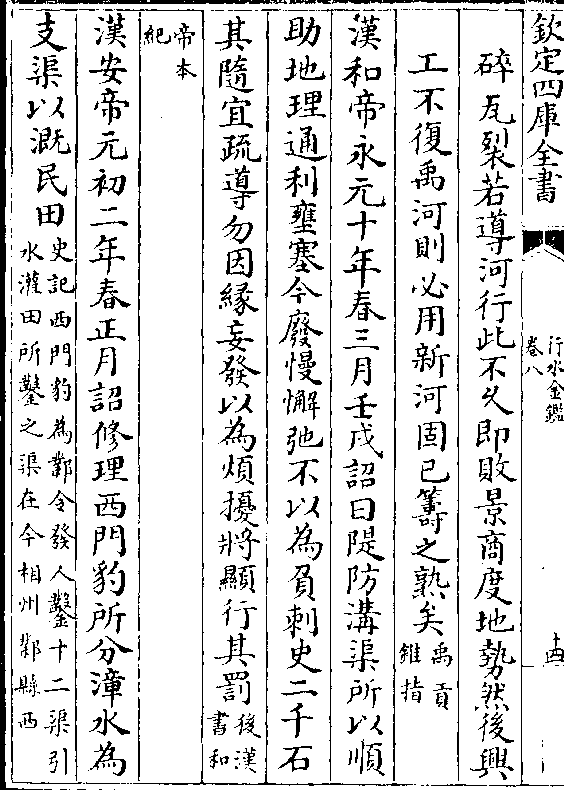 欽定四庫全書
行水金鑑
卷八
十四
碎瓦裂若導河行此不久即敗景商度地勢然後興
工不復禹河則必用新河固已籌之熟矣禹貢
錐指
漢和帝永元十年春三月壬戌詔曰隄防溝渠所以順
助地理通利壅塞今廢慢懈弛不以為負刺史二千石
其隨宜疏導勿因緣妄發以為煩擾將顯行其罰後漢
書和
帝本
紀
漢安帝元初二年春正月詔修理西門豹所分漳水為
支渠以溉民田史記西門豹為鄴令發人鑿十二渠引
水灌田所鑿之渠在今相州鄴縣西